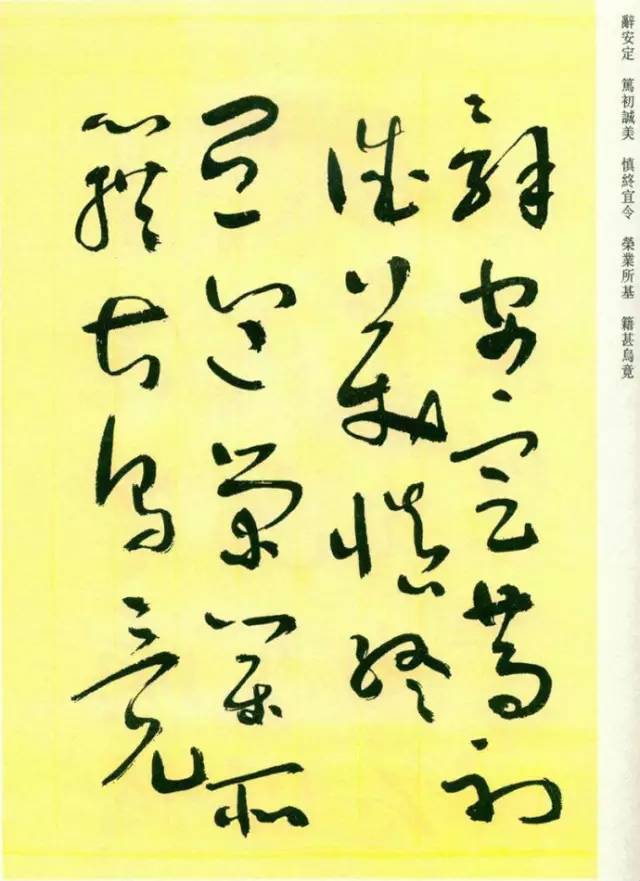 辭安定　篤初誠美　慎終宜令　榮業所基　籍甚烏竟
辭安定篤初
誠美慎終
宜令榮業所
基籍甚烏竟